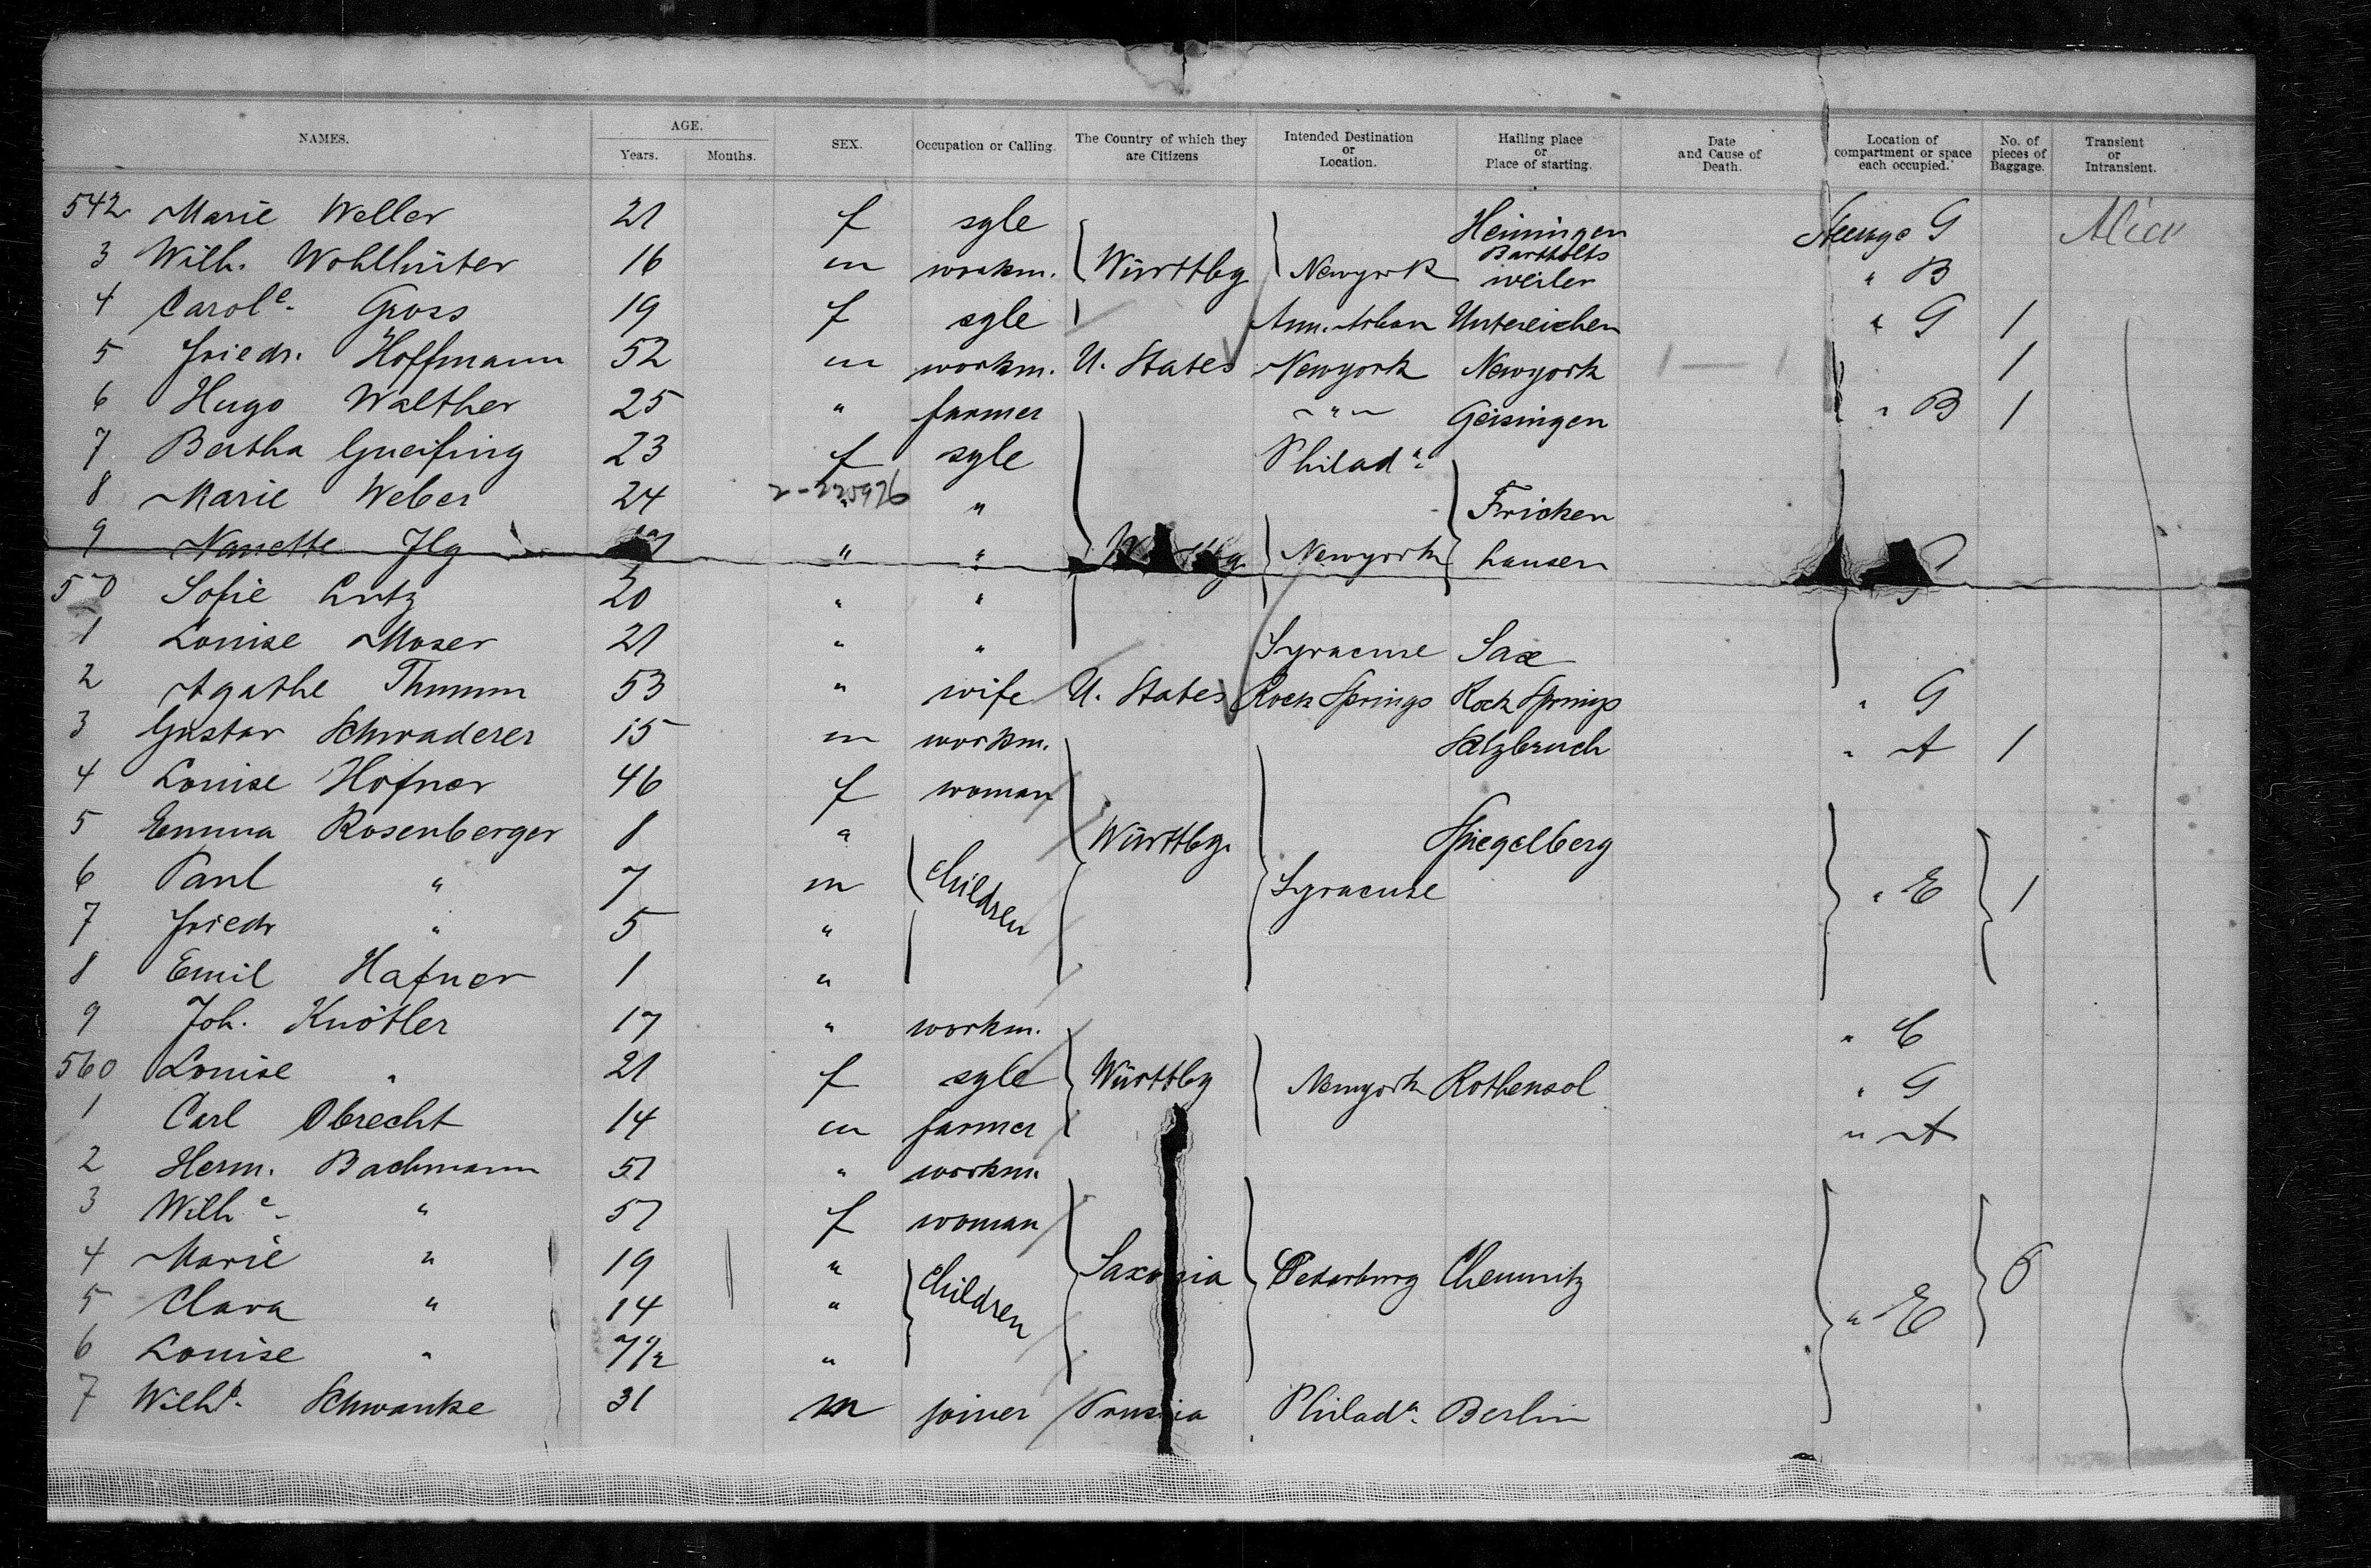 NAMES. AGE. Years. Months. SEX. Occupation or Calling. The Country of which they are Citizens Intended Destination or Location. Hailing place or Place of starting. Date and Cause of Death. Location of compartment or space each occupied. No. of pieces of Baggage. Transient or Intransient.
542 Marie Weller 21 f sgle Heiningen Steerage G
3 Wilh. Wohlhüter 16 m workm. Württbg Newyork Bartholts weiler " B
4 Carol e. Gross 19 f sgle Ann. Arbor Untereichen " G 1
5 Friedr. Hoffmann 52 m workm. U. States Newyork Newyork 1
6 Hugo Walther 25 " farmer " Geisingen " B 1
7 Bertha 23 f sgle Philad a.
8 Marie Weber 24 2-225976 " " Fricken
9 Nanette Ilg " " Newyork hausen
550 Sofie Lutz 20 " "
1 Louise Moser 21 " " Syracuse Sax
2 Agathe Thumm 53 " wife U. States Rock Springs Rock Springs " G
3 Gustav Schwaderer 15 m workm. Salzbruch " A 1
4 Louise Hofner 46 f woman
5 Emma Rosenberger 8 " Children Württbg. Spiegelberg
6 Paul " 7 m Syracuse " E 1
7 Friedr " 5 "
8 Emil Hafner 1 "
9 Joh. Knötler 17 " workm. " C
560 Louise " 21 f sgle Württbg Newyork Rothensol " G
1 Carl Obrecht 14 m farmer " A
2 Herm. Bachmann 51 " workm.
3 Wilh e. " 51 f woman
4 Marie " 19 " Children Saxonia Petersburg Chemnitz 6
5 Clara " 14 " " E
6 Louise " 7 1/2 "
7 Wilh. Schwanke 31 m joiner Prussia Philad a. Berlin